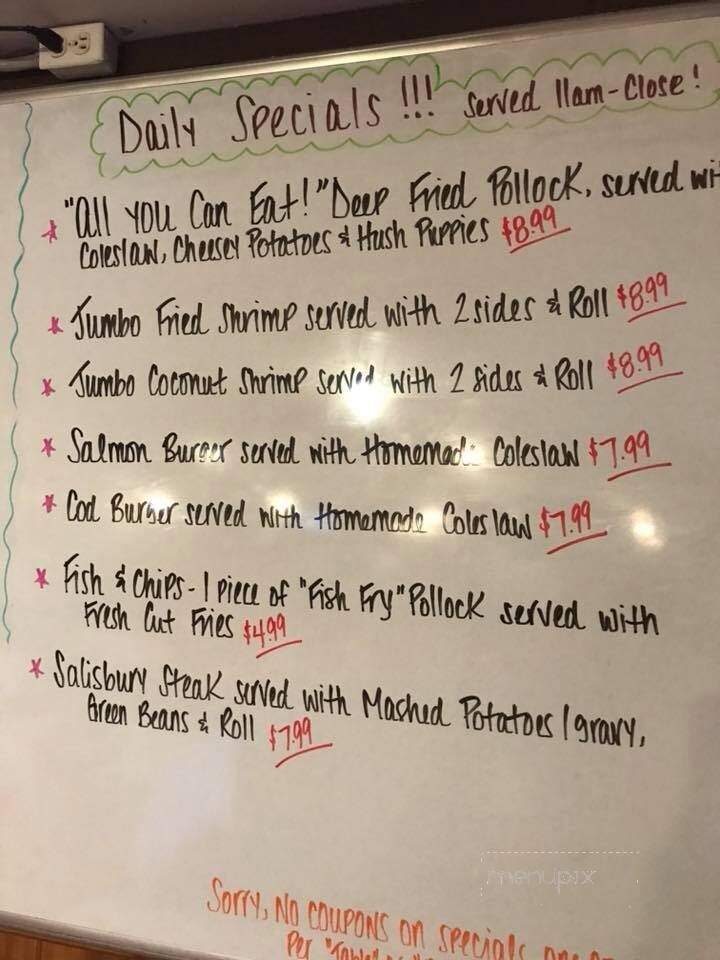 Daily Specials !!! served 11am-Close!
* "All you Can Eat!" Deep Fried Pollock, served
Coleslaw, Cheesey Potatoes & Hush Puppies $8.99
* Jumbo Fried Shrimp served with 2 sides & Roll $8.99
* Jumbo Coconut Shrimp served with 2 sides & Roll $8.99
* Salmon Burger served with Homemade Coleslaw $7.99
* Cod Burger served with Homemade Coleslaw $7.99
* Fish & Chips - 1 piece of "Fish Fry" Pollock served with
Fresh Cut Fries $4.99
* Salisbury Steak served with Mashed Potatoes / gravy,
Green Beans & Roll $7.99
menupix
Sorry, No coupons on specials
Per